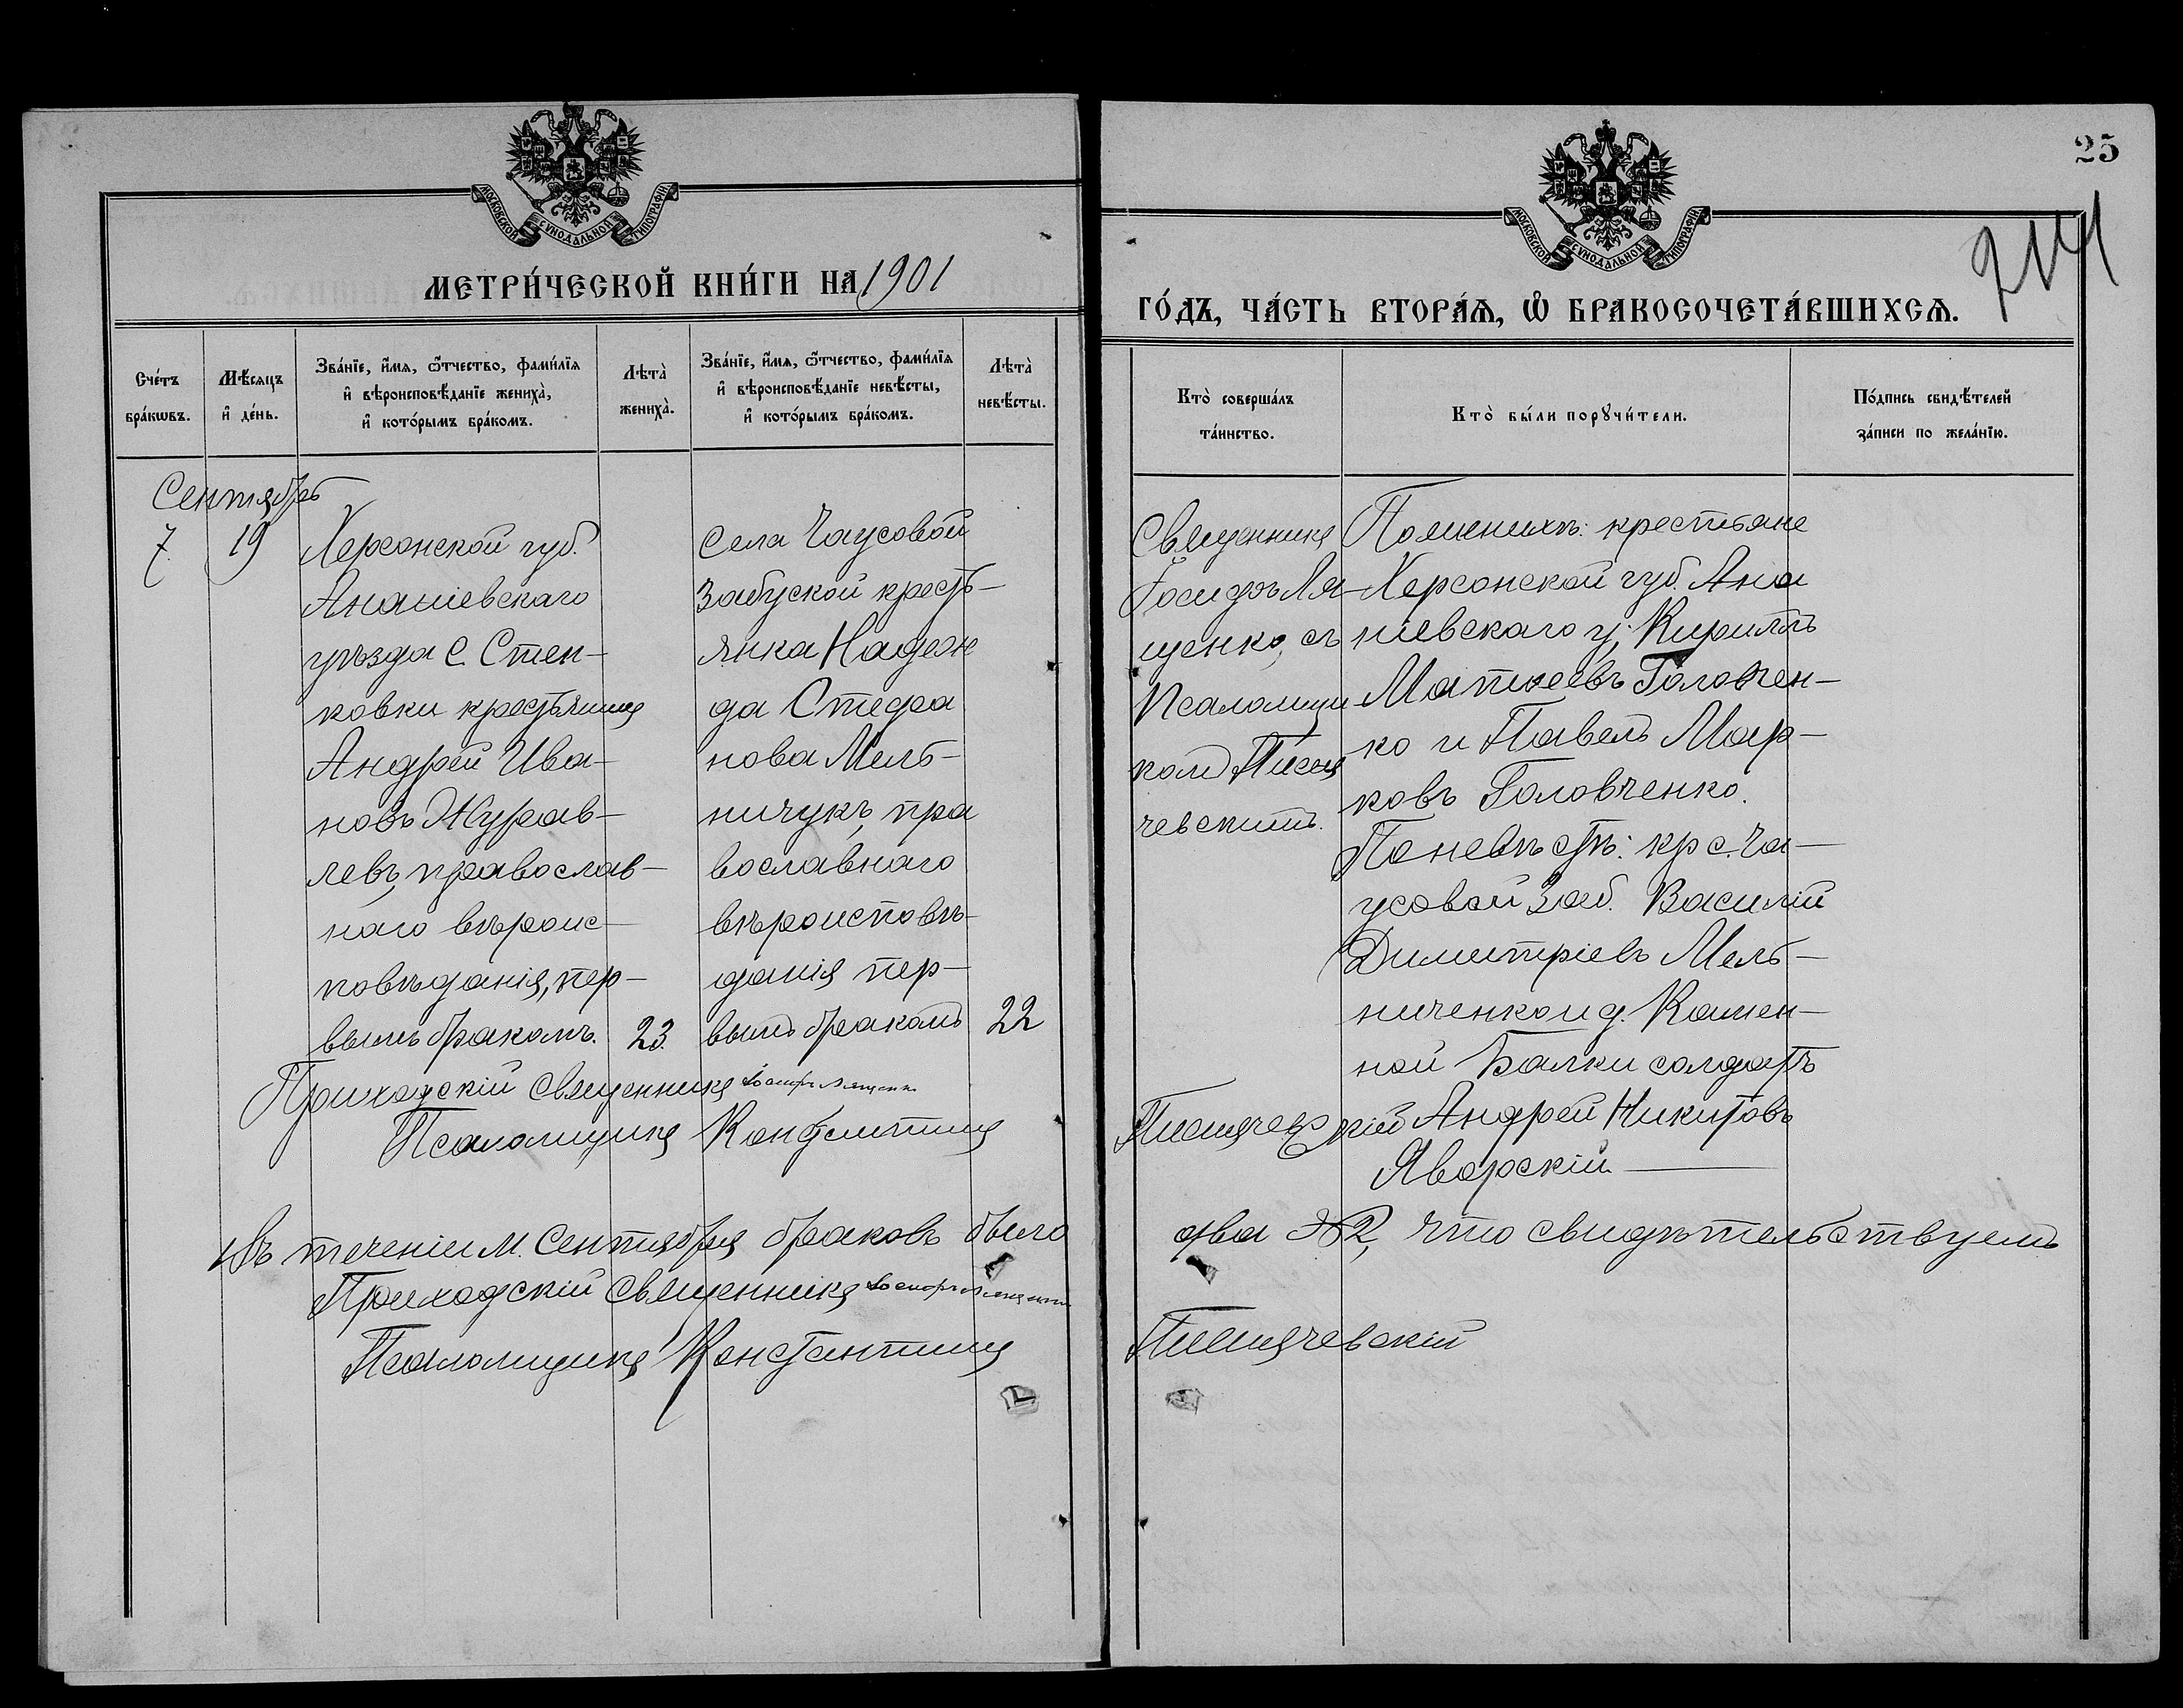 МОСКОВСКОЙ СѴНОДАЛЬНОЙ ТИПОГРАФІИ
МЕТРИ́ЧЕСКОЙ КНИ́ГИ НА 1901
Сче́тъ бра́кѡвъ.
Мѣ́сяцъ и҆ де́нь.
Зва́нїе, и҆́мя, ѿтчество, фами́лїя и҆ вѣроисповѣ́данїе жениха̀, и҆ кото́рымъ бра́комъ.
Лѣта̀ жениха̀.
Зва́нїе, и҆́мя, ѿтчество, фами́лїя и҆ вѣроисповѣ́данїе невѣ́сты, и҆ кото́рымъ бра́комъ.
Лѣта̀ невѣ́сты.
Сентябрь
7. 19
Херсонской губ.
Ананіевскаго
уѣзда с. Стен-
ковки крестьянинъ
Андрей Ива-
новъ Журав-
левъ, православ-
наго вѣроис-
повѣданія, пер-
вымъ бракомъ. 23.
Села Чаусовой
Забуской кресть-
янка Надеж
да Стефа
нова Мель-
ничукъ, пра
вославнаго
вѣроисповѣ-
данія пер-
вымъ бракомъ 22
Приходскій Священникъ Іосифъ Лященко
Псаломщикъ Константинъ
Въ теченіи м. Сентября браковъ было
Приходскій Священникъ Іосифъ Лященко
Псаломщикъ Константинъ
25
214
МОСКОВСКОЙ СѴНОДАЛЬНОЙ ТИПОГРАФІИ
ГО́ДЪ, ЧА́СТЬ ВТОРА́Ѧ, Ѡ҆ БРАКОСОЧЕТА́ВШИХСѦ.
Кто̀ соверша́лъ та́инство.
Кто̀ бы́ли порꙋчи́тели.
По́дпись свидѣ́телей за́писи по жела́нїю.
Священникъ
Іосифъ Ля-
щенко, съ
Псаломщи
комъ Пися
чевскимъ.
По женихѣ: крестьяне
Херсонской губ. Ана
ніевскаго у. Кириллъ
Матѳеевъ Головчен-
ко и Павелъ Мар-
ковъ Головченко.
По невѣстѣ: кр. с. Ча-
усовой Заб. Василій
Димитріевъ Мель-
ниченко и д. Камен-
ной Балки солдатъ
Андрей Никитовъ
Яворскій
два №2, что свидѣтельствуемъ